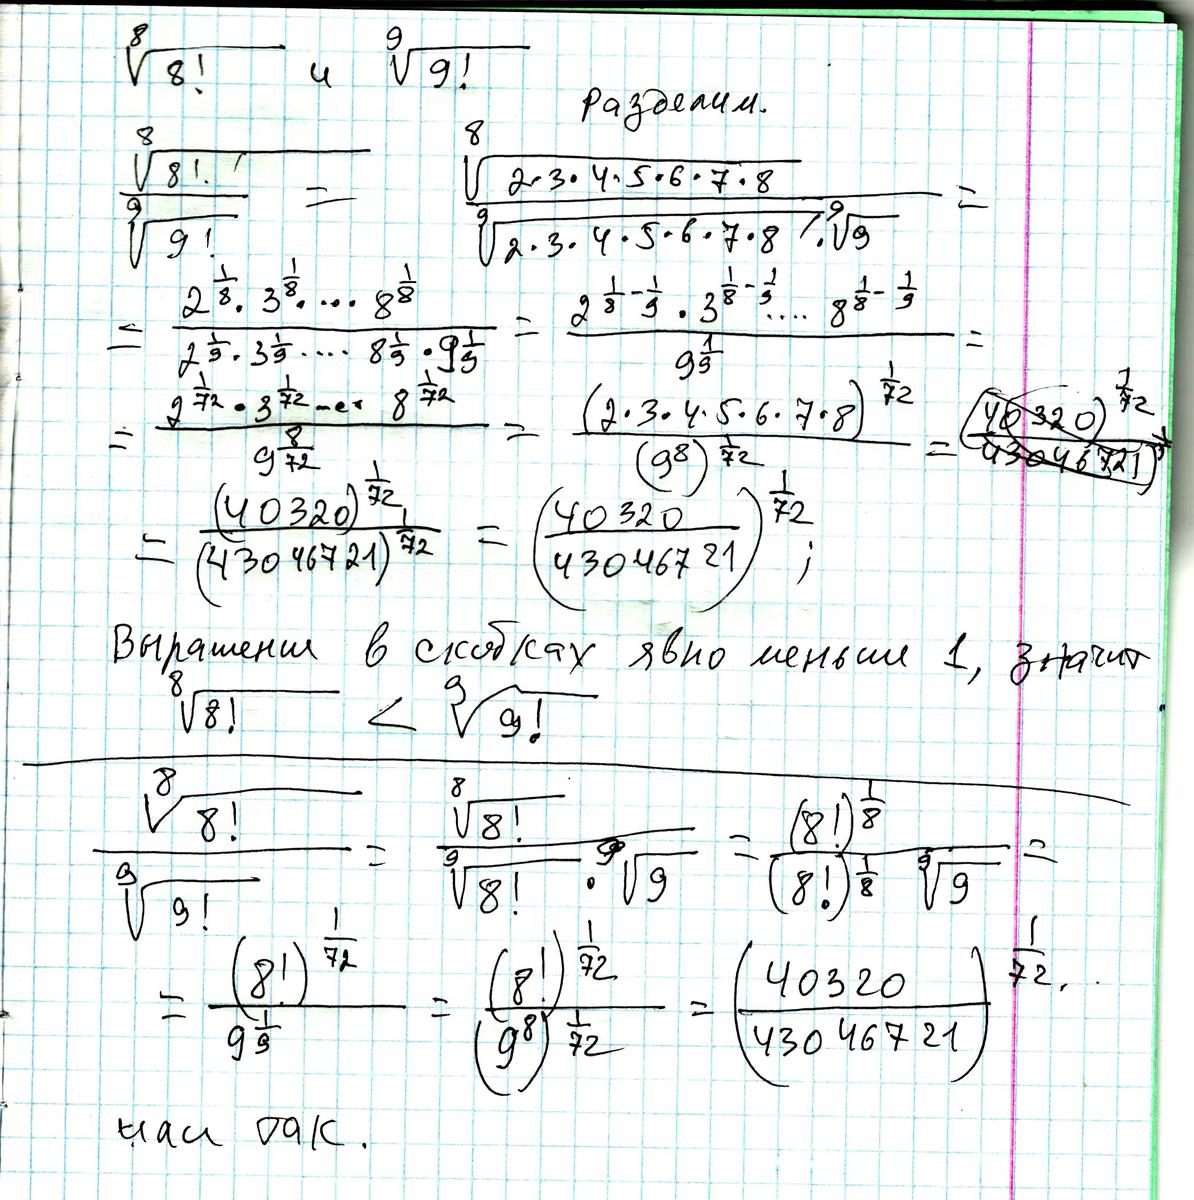 ⁸√8! и ⁹√9!
Разделим.
⁸√8! / ⁹√9! = ⁸√(2·3·4·5·6·7·8) / (⁹√(2·3·4·5·6·7·8) · ⁹√9) =
= (2^(1/8) · 3^(1/8) · ... 8^(1/8)) / (2^(1/9) · 3^(1/9) · ... 8^(1/9) · 9^(1/9)) = (2^(1/8 - 1/9) · 3^(1/8 - 1/9) · ... 8^(1/8 - 1/9)) / 9^(1/9) =
= (2^(1/72) · 3^(1/72) ... 8^(1/72)) / 9^(8/72) = (2·3·4·5·6·7·8)^(1/72) / (9^8)^(1/72) =
= (40320)^(1/72) / (43046721)^(1/72) = (40320 / 43046721)^(1/72);
Выражения в скобках явно меньше 1, значит
⁸√8! < ⁹√9!
⁸√8! / ⁹√9! = ⁸√8! / (⁹√8! · ⁹√9) = (8!)^(1/8) / ((8!)^(1/8) ⁹√9) =
= (8!)^(1/72) / 9^(1/9) = (8!)^(1/72) / (9^8)^(1/72) = (40320 / 43046721)^(1/72).
или так.